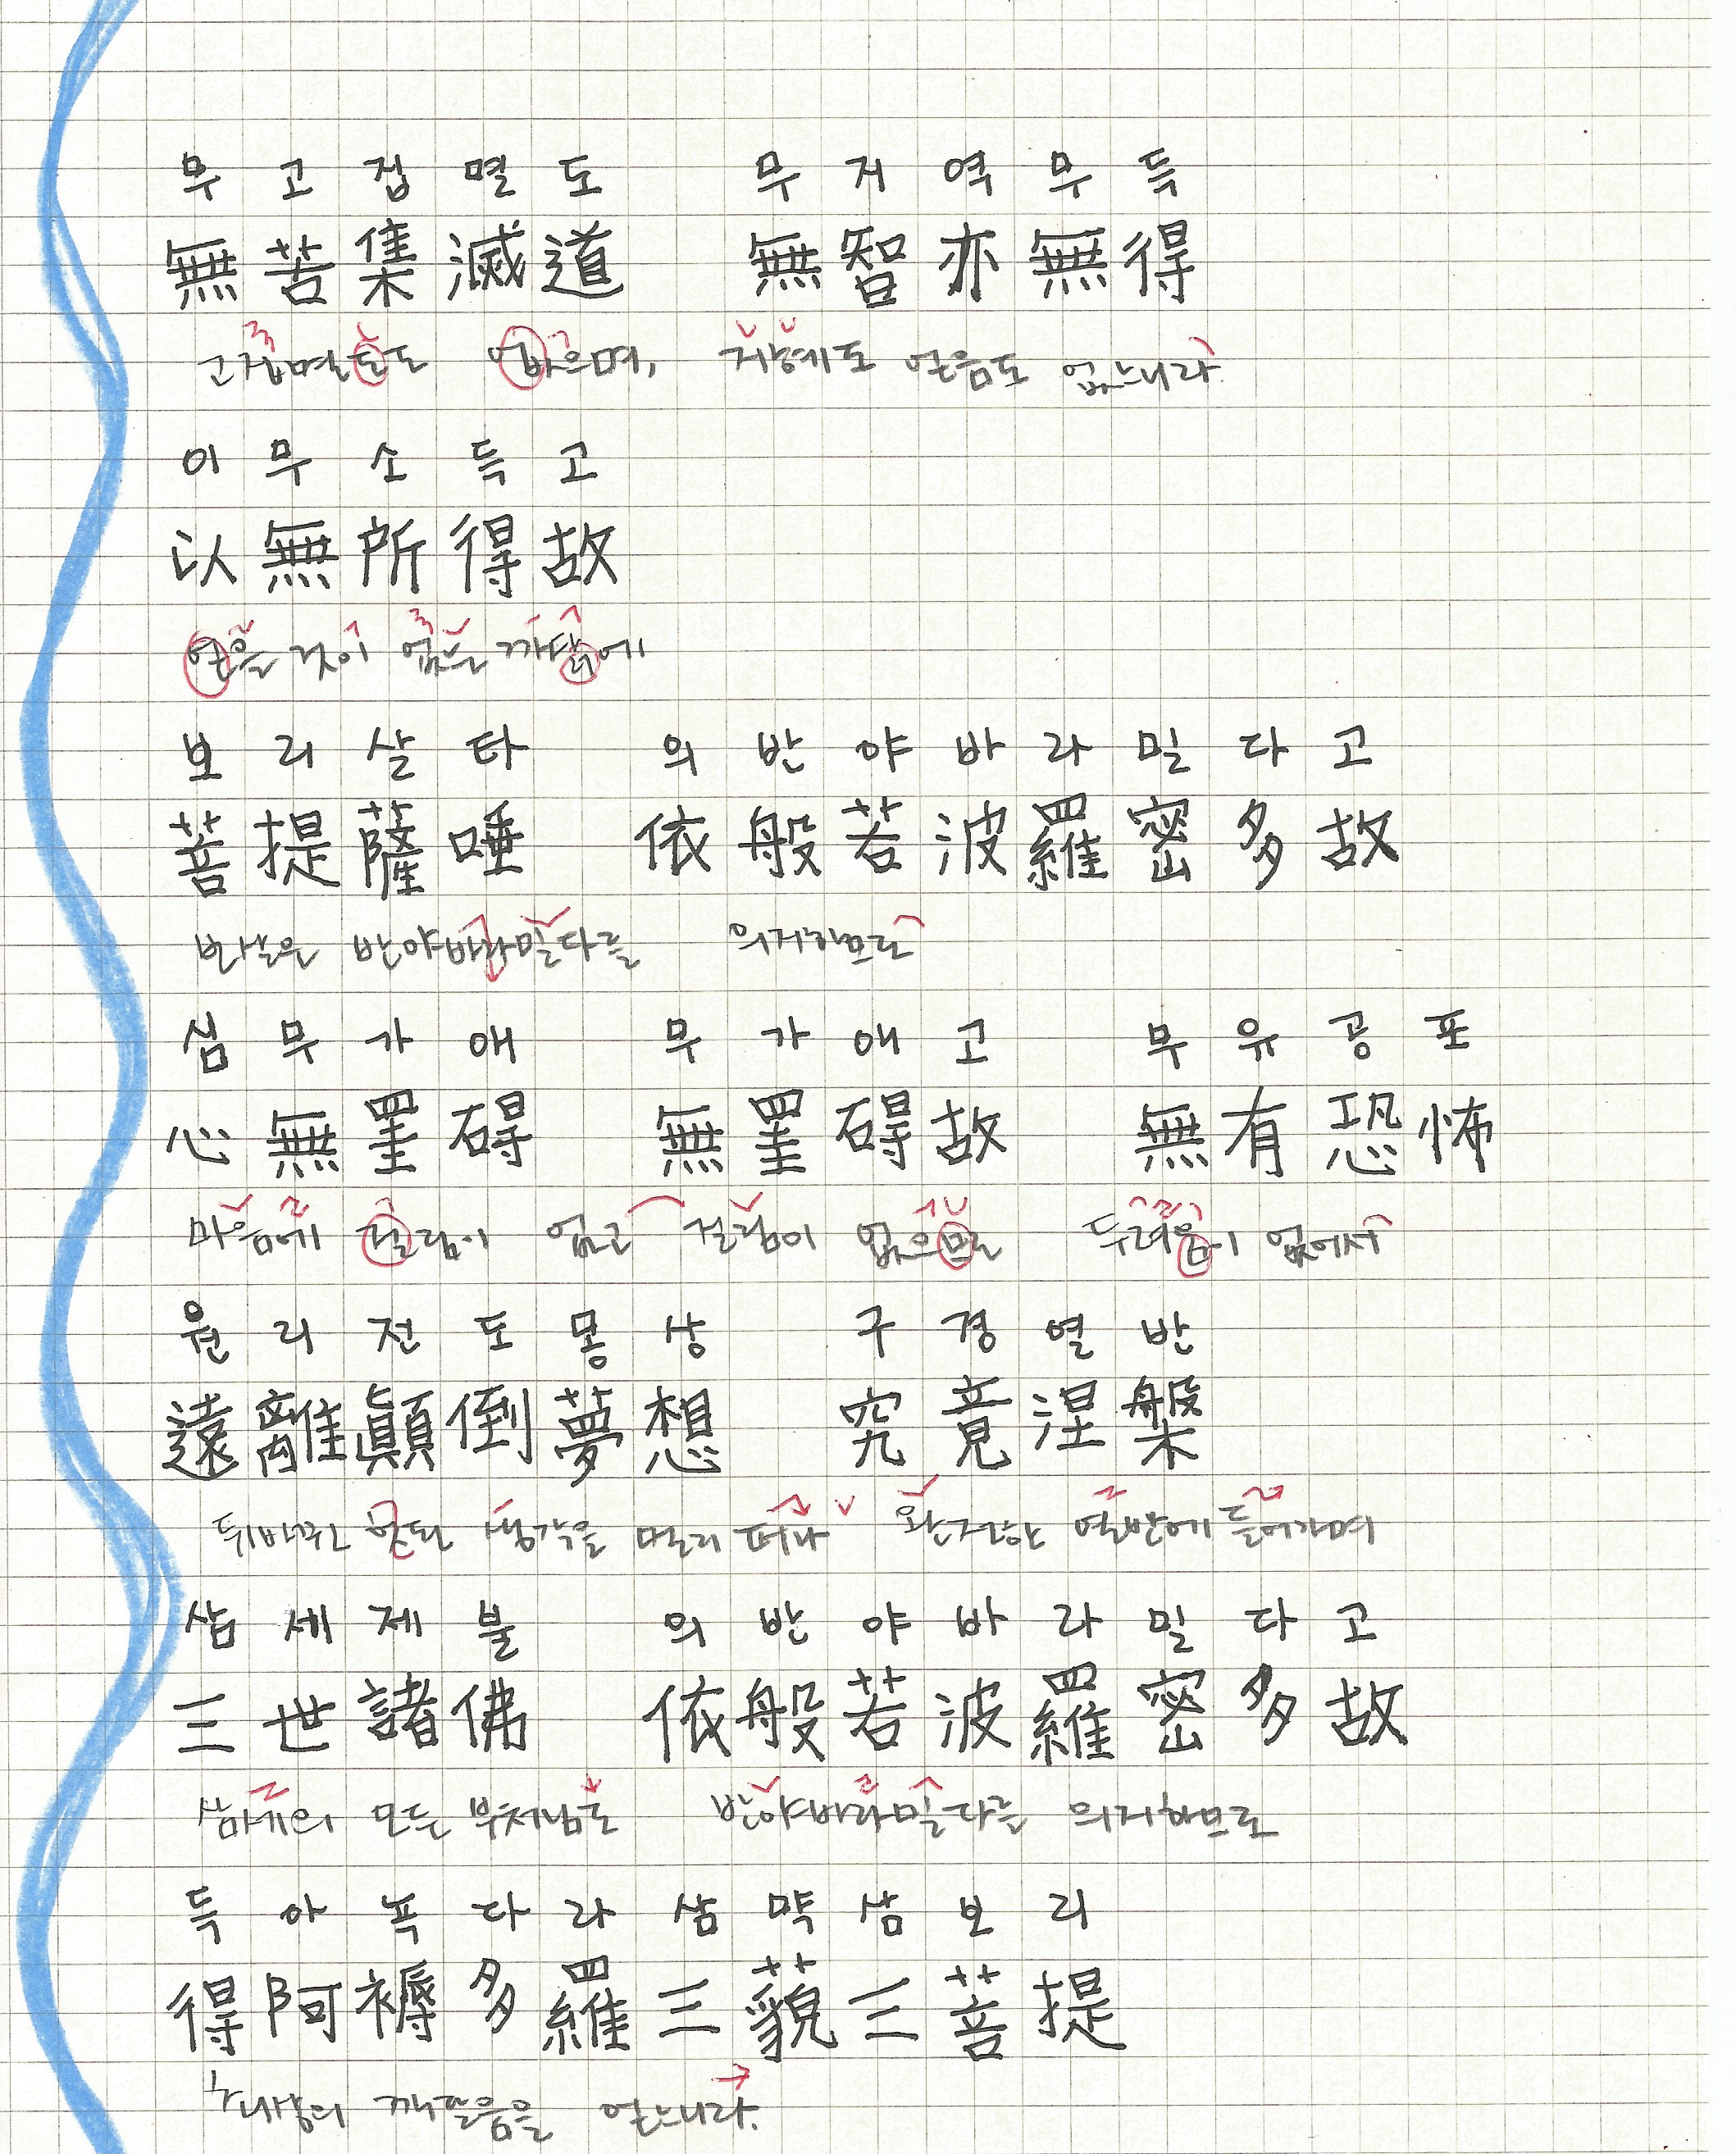 무 고 집 멸 도 무 지 역 무 득
無 苦 集 滅 道 無 智 亦 無 得
고집멸도도 없으며, 지혜도 얻음도 없느니라.
이 무 소 득 고
以 無 所 得 故
얻을 것이 없는 까닭에
보 리 살 타 의 반 야 바 라 밀 다 고
菩 提 薩 唾 依 般 若 波 羅 密 多 故
보살은 반야바라밀다를 의지하므로
심 무 가 애 무 가 애 고 무 유 공 포
心 無 罣 碍 無 罣 碍 故 無 有 恐 怖
마음에 걸림이 없고 걸림이 없으므로 두려움이 없어서
원 리 전 도 몽 상 구 경 열 반
遠 離 顚 倒 夢 想 究 竟 涅 槃
뒤바뀐 헛된 생각을 멀리 떠나 완전한 열반에 들어가며
삼 세 제 불 의 반 야 바 라 밀 다 고
三 世 諸 佛 依 般 若 波 羅 密 多 故
삼세의 모든 부처님도 반야바라밀다를 의지하므로
득 아 뇩 다 라 삼 먁 삼 보 리
得 阿 褥 多 羅 三 藐 三 菩 提
깨달음을 얻느니라.